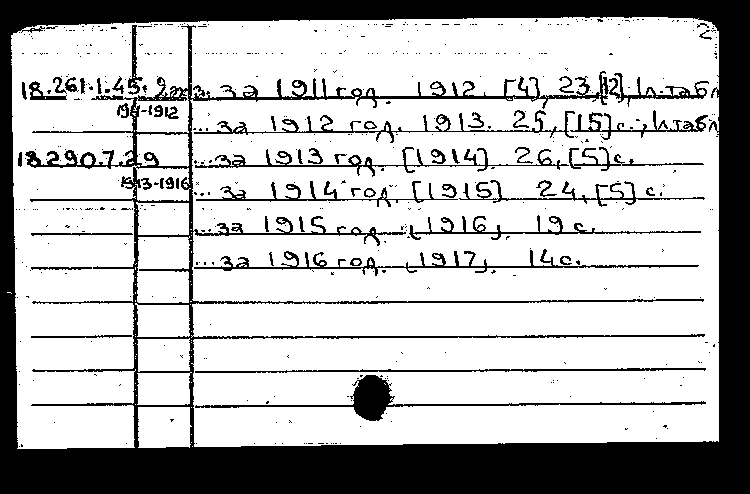 2
18.261.1.45. 2экз. ...за 1911 год. 1912. [4], 23, [12], 1 л. табл
1911-1912 ...за 1912 год. 1913. 25, [15] с., 1 л. табл
18.290.7.29 ...за 1913 год. [1914]. 26, [5] с.
1913-1916 ...за 1914 год. [1915]. 24, [5] с.
...за 1915 год. [1916]. 19 с.
...за 1916 год. [1917]. 14 с.